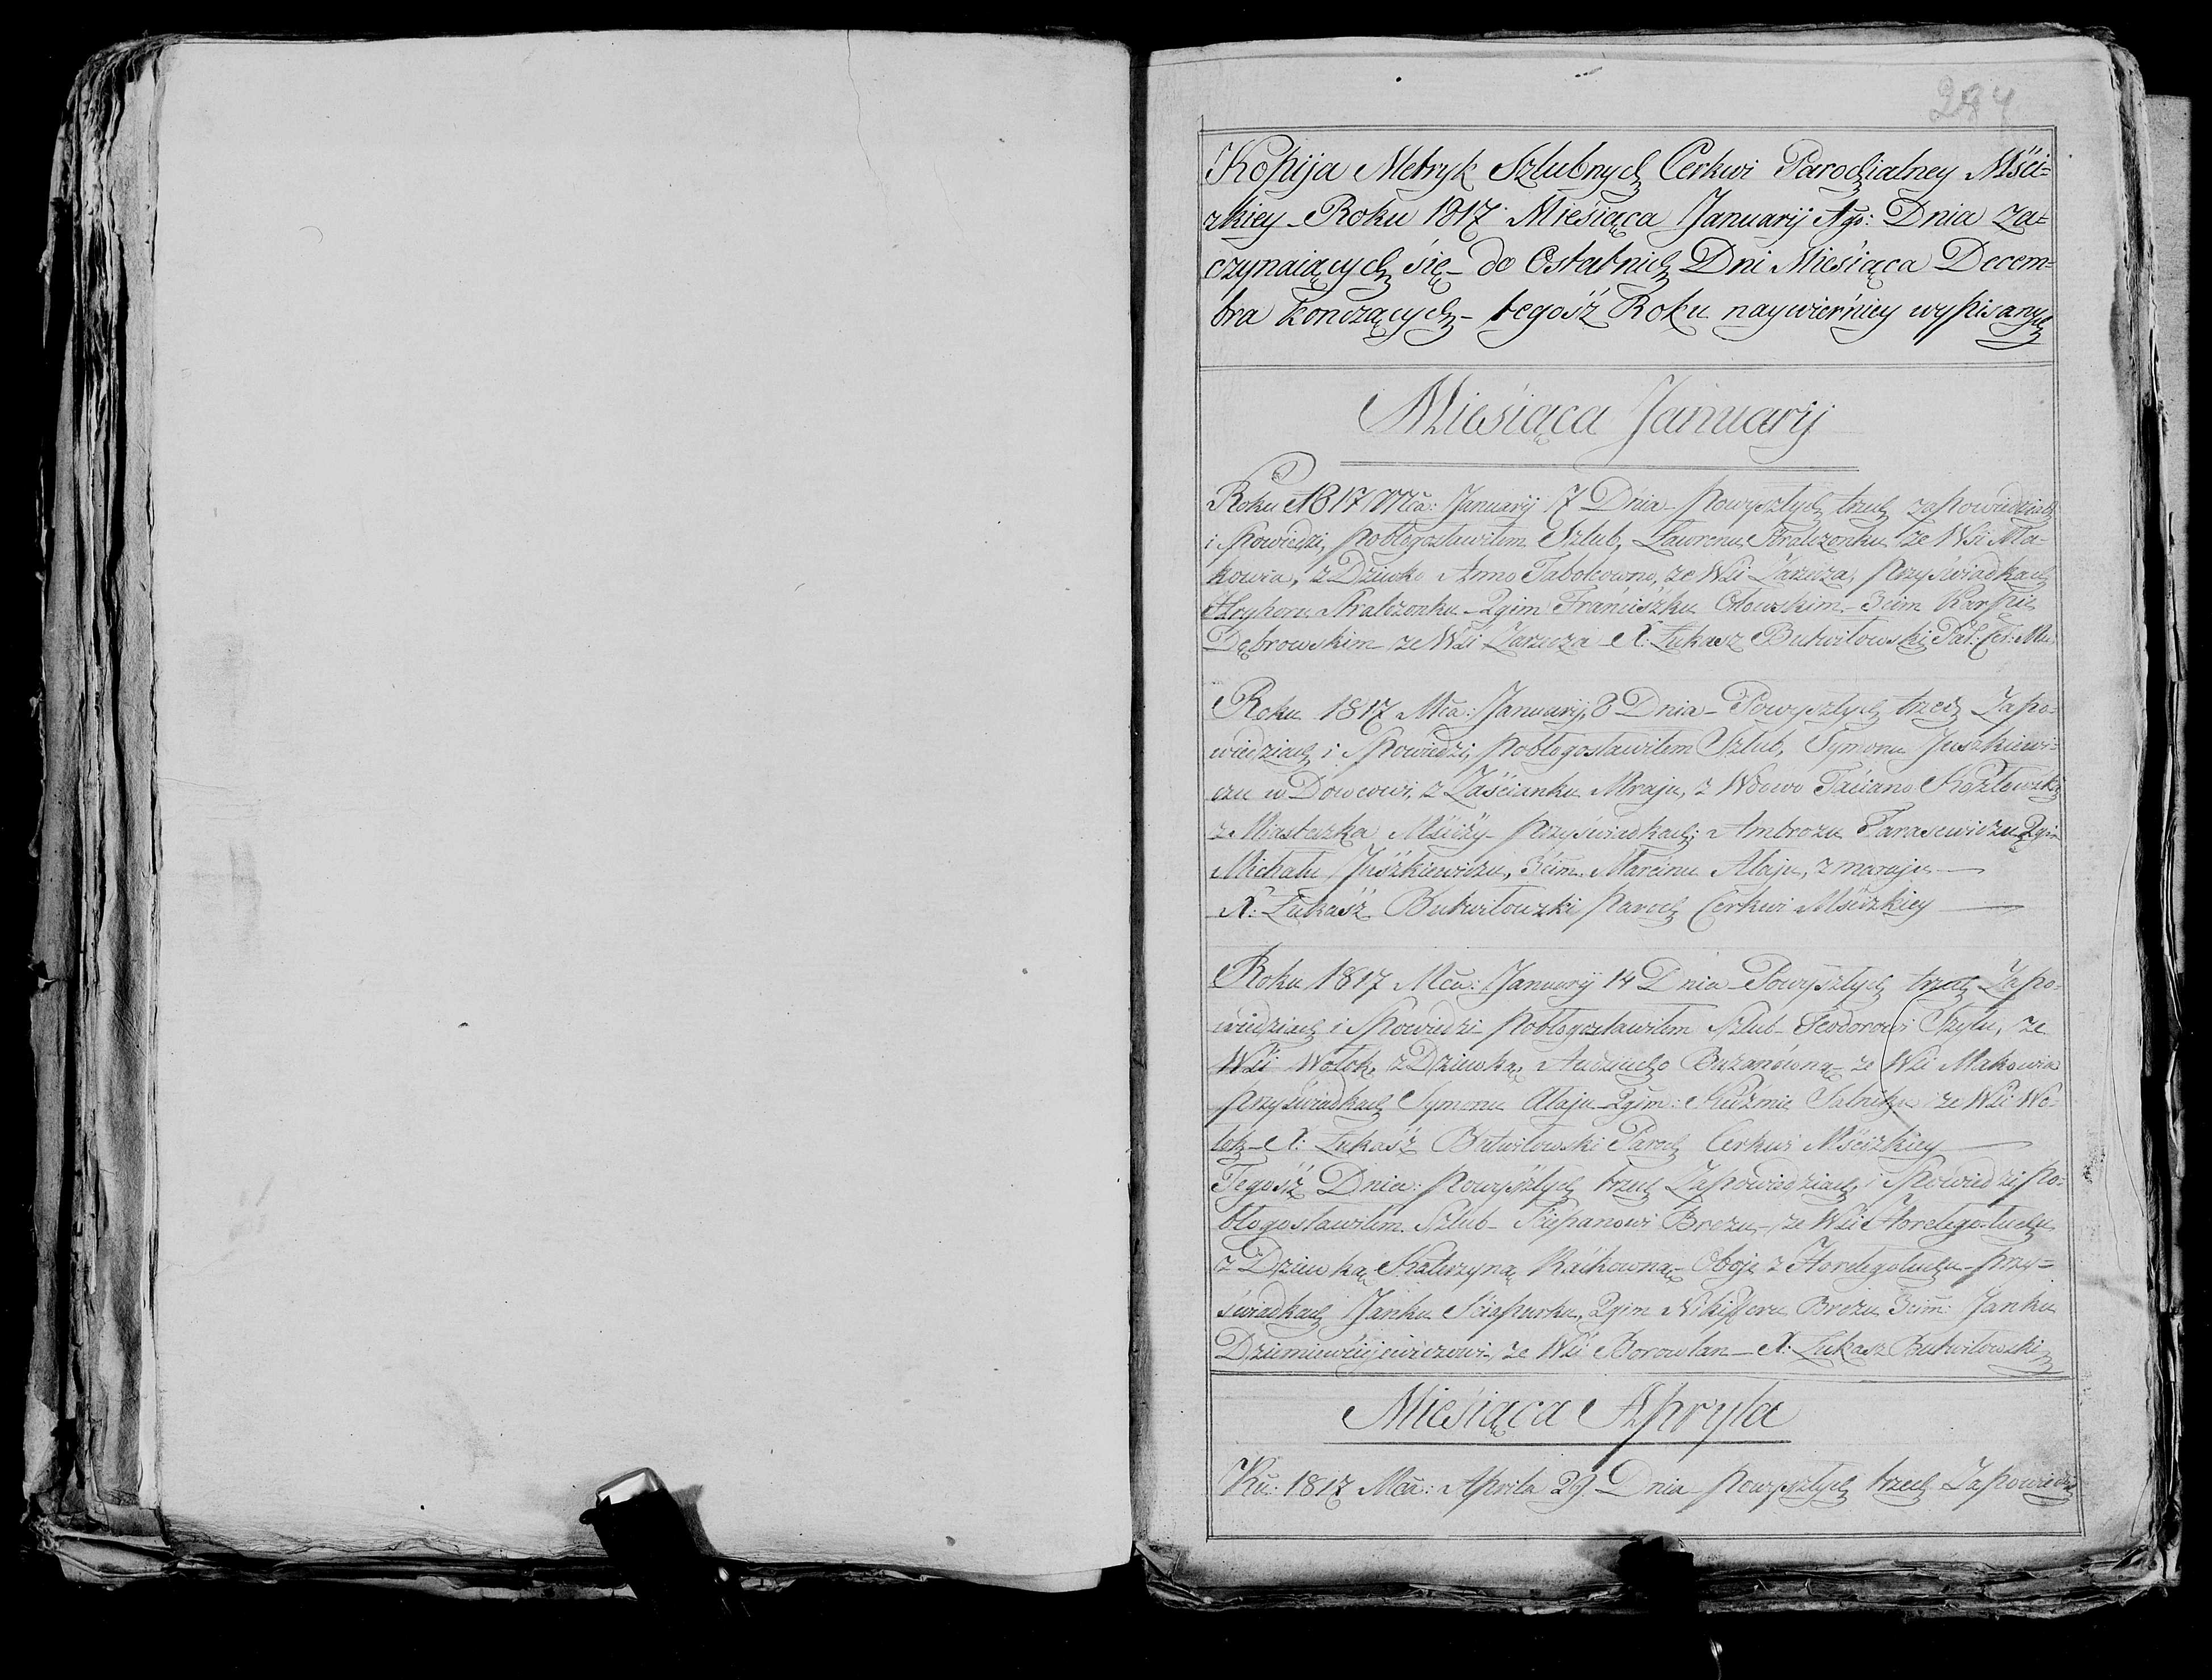 284
Kopija Metryk Szlubnych Cerkwi Parochialney Mści-
zkiey Roku 1817 Miesiąca Januarij 1go: Dnia za-
czynaiących się do Ostatnich Dni Miesiąca Decem-
bra konczących tegosź Roku naywierniey wypisanych
Miesiąca Januarij
Roku 1817 Mca: Januarij 7 Dnia powyszłych trzech zapowiedziach
i spowiedzi, pobłogosławiłem Szlub, Ławrenu ze Wsi Ma-
kowia, z Dziewko Anno Tabolcowno, ze Wsi Zarzecza, przy świadkach
Hryhoru 2gim Franciszku Orłowskim 3cim Karpie
Dębrowskim ze Wsi Zarzecza X: Łukasz Butwiłowski
Roku 1817 Mca: Januarij 8 Dnia Powyszłych trzech Zapo-
wiedziach i Spowiedzi, pobłogosławiłem Szlub, Symonu Juszkiewi-
czu wDowcowi, z Zaścianku Mraju, z Wdowo Taciano
z Miasteczka Mściży przy świadkach: Ambrozu Tarasewiczu 2gim
Michału Juszkiewiczu, 3cim Marcinu Ałaju, z maraju
X: Łukasź Butwiłowzki Paroch Cerkwi Mścizkiey
Roku 1817 Mca: Januarij 14 Dnia Powyszłych trzech Zapo-
wiedziach i Spowiedzi pobłogosławiłem Szlub Teodorowi Szyłu, ze
Wsi Wołok, z Dziewką ze Wsi Makowia
przy świadkach Symonu Ałaju 2gim: Kuźmie ze Wsi Wo-
łok X: Łukasź Butwiłowski Paroch Cerkwi Mścizkiey
Tegosź Dnia: powyszłych trzech Zapowiedziach i Spowiedzi po-
błogosławiłem Szlub Sciepanowi Brozu ze Wsi
z Dziewką Katerzyną Oboje z przy-
świadkach Janku 2gim Nikiforu Brozu 3cim: Janku
ze Wsi Borowlan X: Łukasz Butwiłowski
Miesiąca Apryla
Ru: 1817 Mca: Aprila 29 Dnia powyszłych trzech Zapowiedz